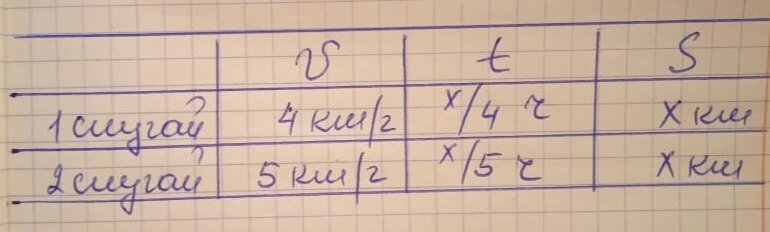 v t S
1 случай 4 км/ч x/4 ч x км
2 случай 5 км/ч x/5 ч x км